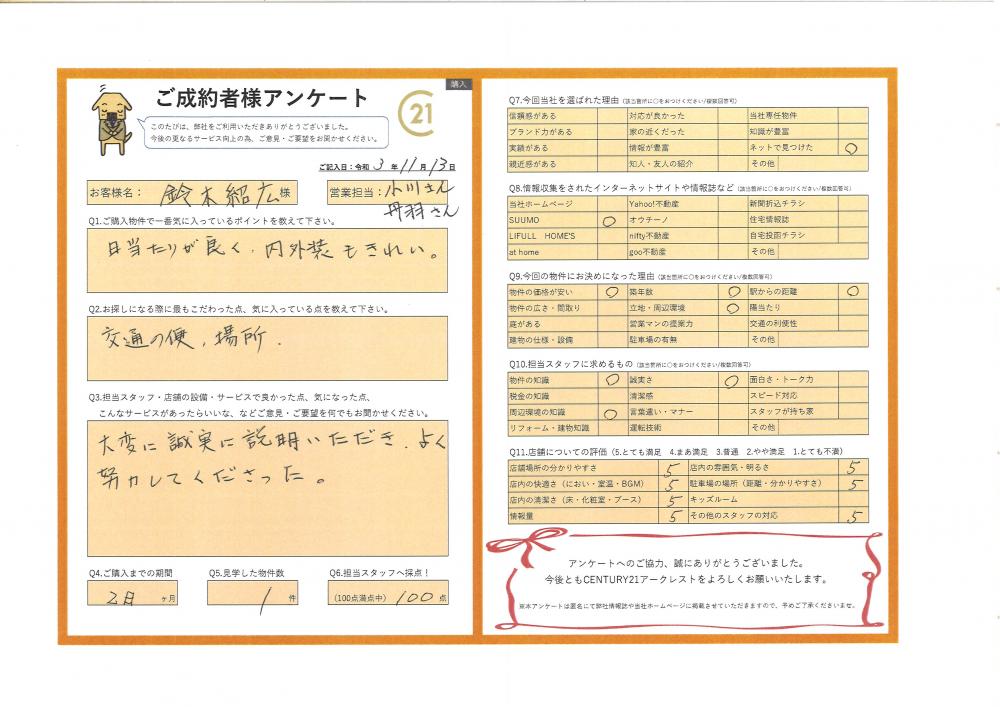 購入
ご成約者様アンケート
21
このたびは、弊社をご利用いただきありがとうございました。
今後の更なるサービス向上の為、ご意見・ご要望をお聞かせください。
ご記入日：令和 3 年 11 月 13 日
お客様名： 鈴木紹広 様
営業担当： 小川さん
丹羽さん
Q1.ご購入物件で一番気に入っているポイントを教えて下さい。
日当たりが良く、内外装もきれい。
Q2.お探しになる際に最もこだわった点、気に入っている点を教えて下さい。
交通の便、場所.
Q3.担当スタッフ・店舗の設備・サービスで良かった点、気になった点、
こんなサービスがあったらいいな、などご意見・ご要望を何でもお聞かせください。
大変に誠実に説明いただき、よく
努力してくださった。
Q4.ご購入までの期間
2月 ヶ月
Q5.見学した物件数
1 件
Q6.担当スタッフへ採点！
(100点満点中) 100 点
Q7.今回当社を選ばれた理由（該当箇所に○をおつけください/複数回答可）
信頼感がある 対応が良かった 当社専任物件
ブランド力がある 家の近くだった 知識が豊富
実績がある 情報が豊富 ネットで見つけた ○
親近感がある 知人・友人の紹介 その他
Q8.情報収集をされたインターネットサイトや情報誌など（該当箇所に○をおつけください/複数回答可）
当社ホームページ Yahoo!不動産 新聞折込チラシ
SUUMO ○ オウチーノ 住宅情報誌
LIFULL HOME'S nifty不動産 自宅投函チラシ
at home goo不動産 その他
Q9.今回の物件にお決めになった理由（該当箇所に○をおつけください/複数回答可）
物件の価格が安い ○ 築年数 ○ 駅からの距離 ○
物件の広さ・間取り 立地・周辺環境 ○ 陽当たり
庭がある 営業マンの提案力 交通の利便性
建物の仕様・設備 駐車場の有無 その他
Q10.担当スタッフに求めるもの（該当箇所に○をおつけください/複数回答可）
物件の知識 ○ 誠実さ ○ 面白さ・トーク力
税金の知識 清潔感 スピード対応
周辺環境の知識 ○ 言葉遣い・マナー スタッフが持ち家
リフォーム・建物知識 運転技術 その他
Q11.店舗についての評価（5.とても満足 4.まあ満足 3.普通 2.やや満足 1.とても不満）
店舗場所の分かりやすさ 5 店内の雰囲気・明るさ 5
店内の快適さ（におい・室温・BGM） 5 駐車場の場所（距離・分かりやすさ） 5
店内の清潔さ（床・化粧室・ブース） 5 キッズルーム
情報量 5 その他のスタッフの対応 5
アンケートへのご協力、誠にありがとうございました。
今後ともCENTURY21アークレストをよろしくお願いいたします。
※本アンケートは匿名にて弊社情報誌や当社ホームページに掲載させていただきますので、予めご了承くださいませ。